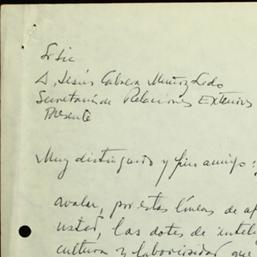 Sr Lic
D. Jesús Cabrera Muñoz Ledo
Secretaría de Relaciones Exteriores
Presente
Muy distinguido y fino amigo:
avalar, por estas líneas de
usted, las dotes de
cultura y laboriosidad que